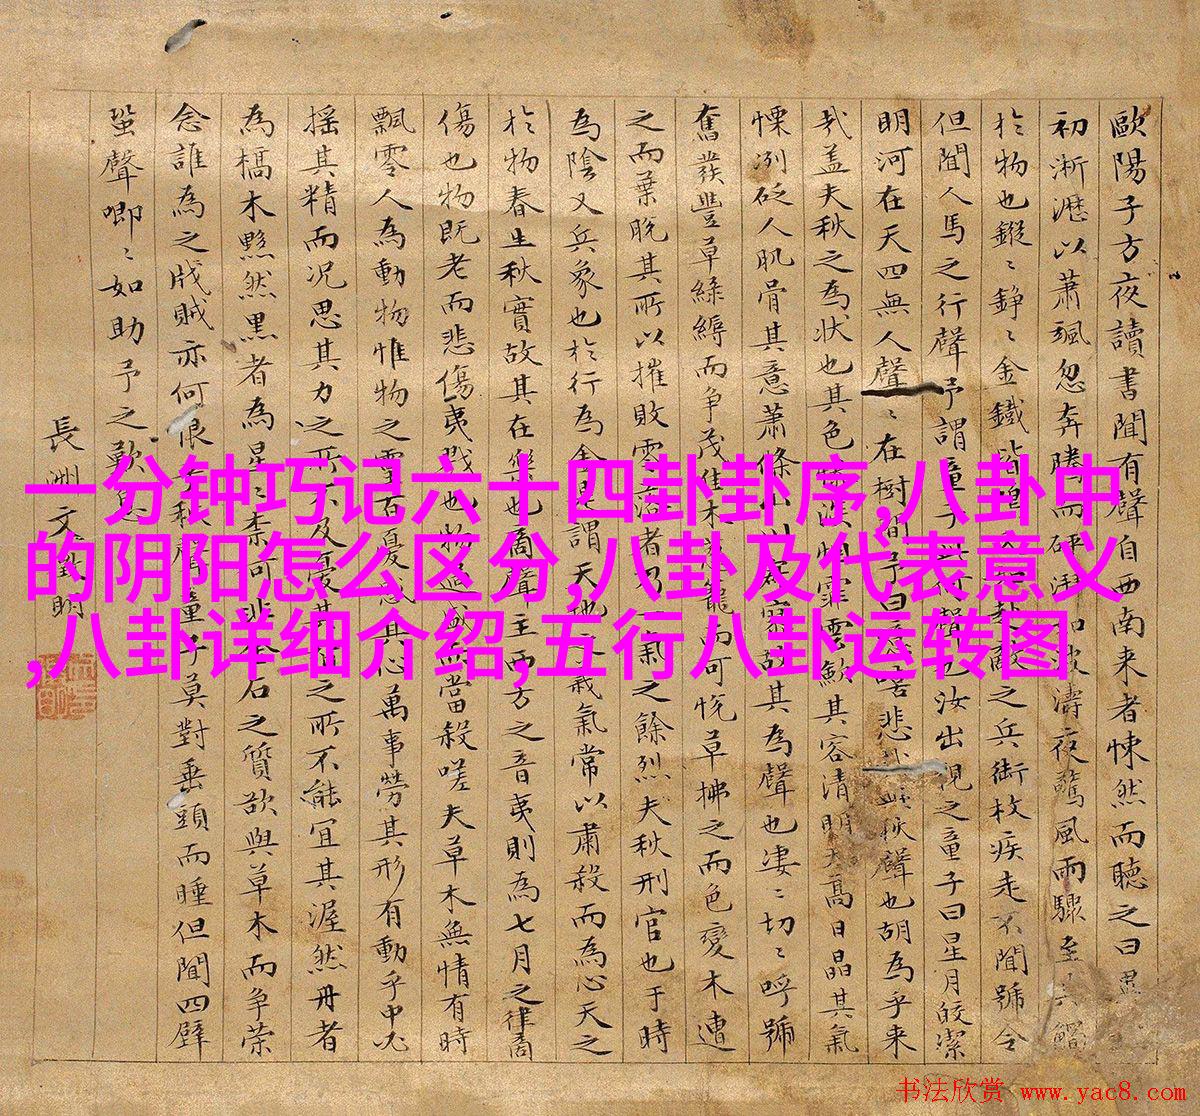 歐陽子方夜讀書聞有聲自西南来者悚然而聽之曰異
初淅瀝以蕭颯忽奔騰而砰湃如波濤夜驚風雨驟至其觸
於物也鏦〻錚〻金鐵皆鳴 赴敵之兵銜枚疾走不聞號令
但聞人馬之行聲予謂童子此何聲也汝出視之童子曰星月皎潔
明河在天四無人聲〻在樹間予曰噫嘻悲哉此秋聲也胡為乎来
哉盖夫秋之為状也其色慘淡烟霏雲斂其容清明天高日晶其氣
慄冽砭人肌骨其意蕭條山川寂寥故其為聲也凄〻切〻呼號
奮發豐草綠縟而争茂佳木葱籠而可悅草拂之而色變木遭
之而葉脫其所以摧敗零落者乃一氣之餘烈夫秋刑官也于時
為陰又兵象也於行為金是謂天地之義氣常以肅殺而為心天之
於物春生秋實故其在樂也商聲主西方之音夷則為七月之律商
傷也物既老而悲傷夷戮也物過盛而當殺嗟夫草木無情有時
飄零人為動物惟物之靈百憂感其心萬事勞其形有動乎中必
摇其精而况思其力之所不及憂其智之所不能宜其渥然丹者
為槁木黟然黑者為星〻柰何非金石之質欲與草木而争荣
念誰為之戕賊亦何恨乎秋聲童子莫對垂頭而睡但聞四壁
蛩聲唧〻如助予之歎息
長洲文徵明
一分钟巧记六十四卦卦序,八卦中
的阴阳怎么区分,八卦及代表意义
,八卦详细介绍,五行八卦运转图
书法欣赏 www.yac8.com